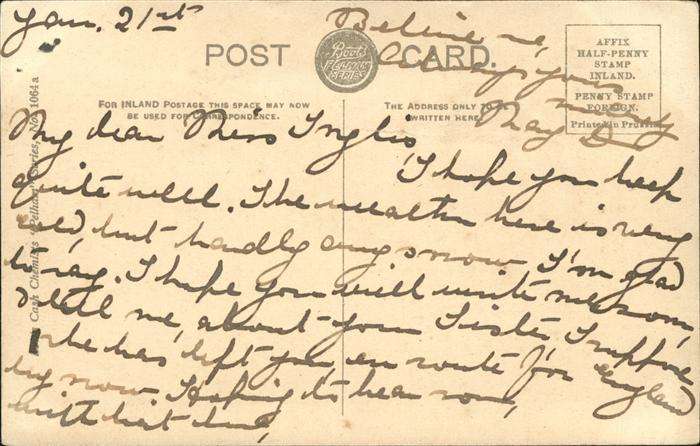 Jan. 21st
POST CARD.
Boots
AFFIX
HALF-PENNY
STAMP
INLAND.
PENNY STAMP
FOREIGN.
Printed in Prussia
FOR INLAND POSTAGE THIS SPACE MAY NOW
BE USED FOR CORRESPONDENCE.
THE ADDRESS ONLY TO
WRITTEN HERE
Cash Chemists "Pelham" Series, No. 1064a
My dear Miss Inglis
I hope you keep
quite well. The weather here is very
cold, but hardly any snow I'm glad
to say. I hope you will write me soon,
& tell me, about your Sister, I suppose
she has left you, en route for England
by now. Hoping to hear soon,
with best love,
Believe me,
Always yours
May D